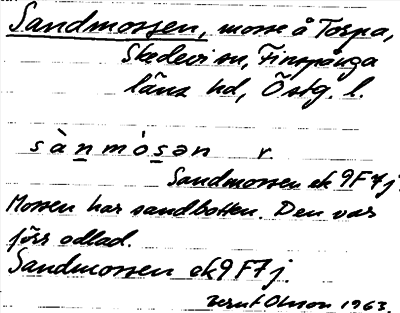 Sandmossen, mosse å Torpa,
Skedevi sn, Finspånga
läns hd, Östg. l.
sànmòsən r.
Sandmossen ek 9F7j.
Mossen har sandbotten. Den var
förr odlad.
Sandmossen ek 9F7j.
Bernt Olsson 1963.